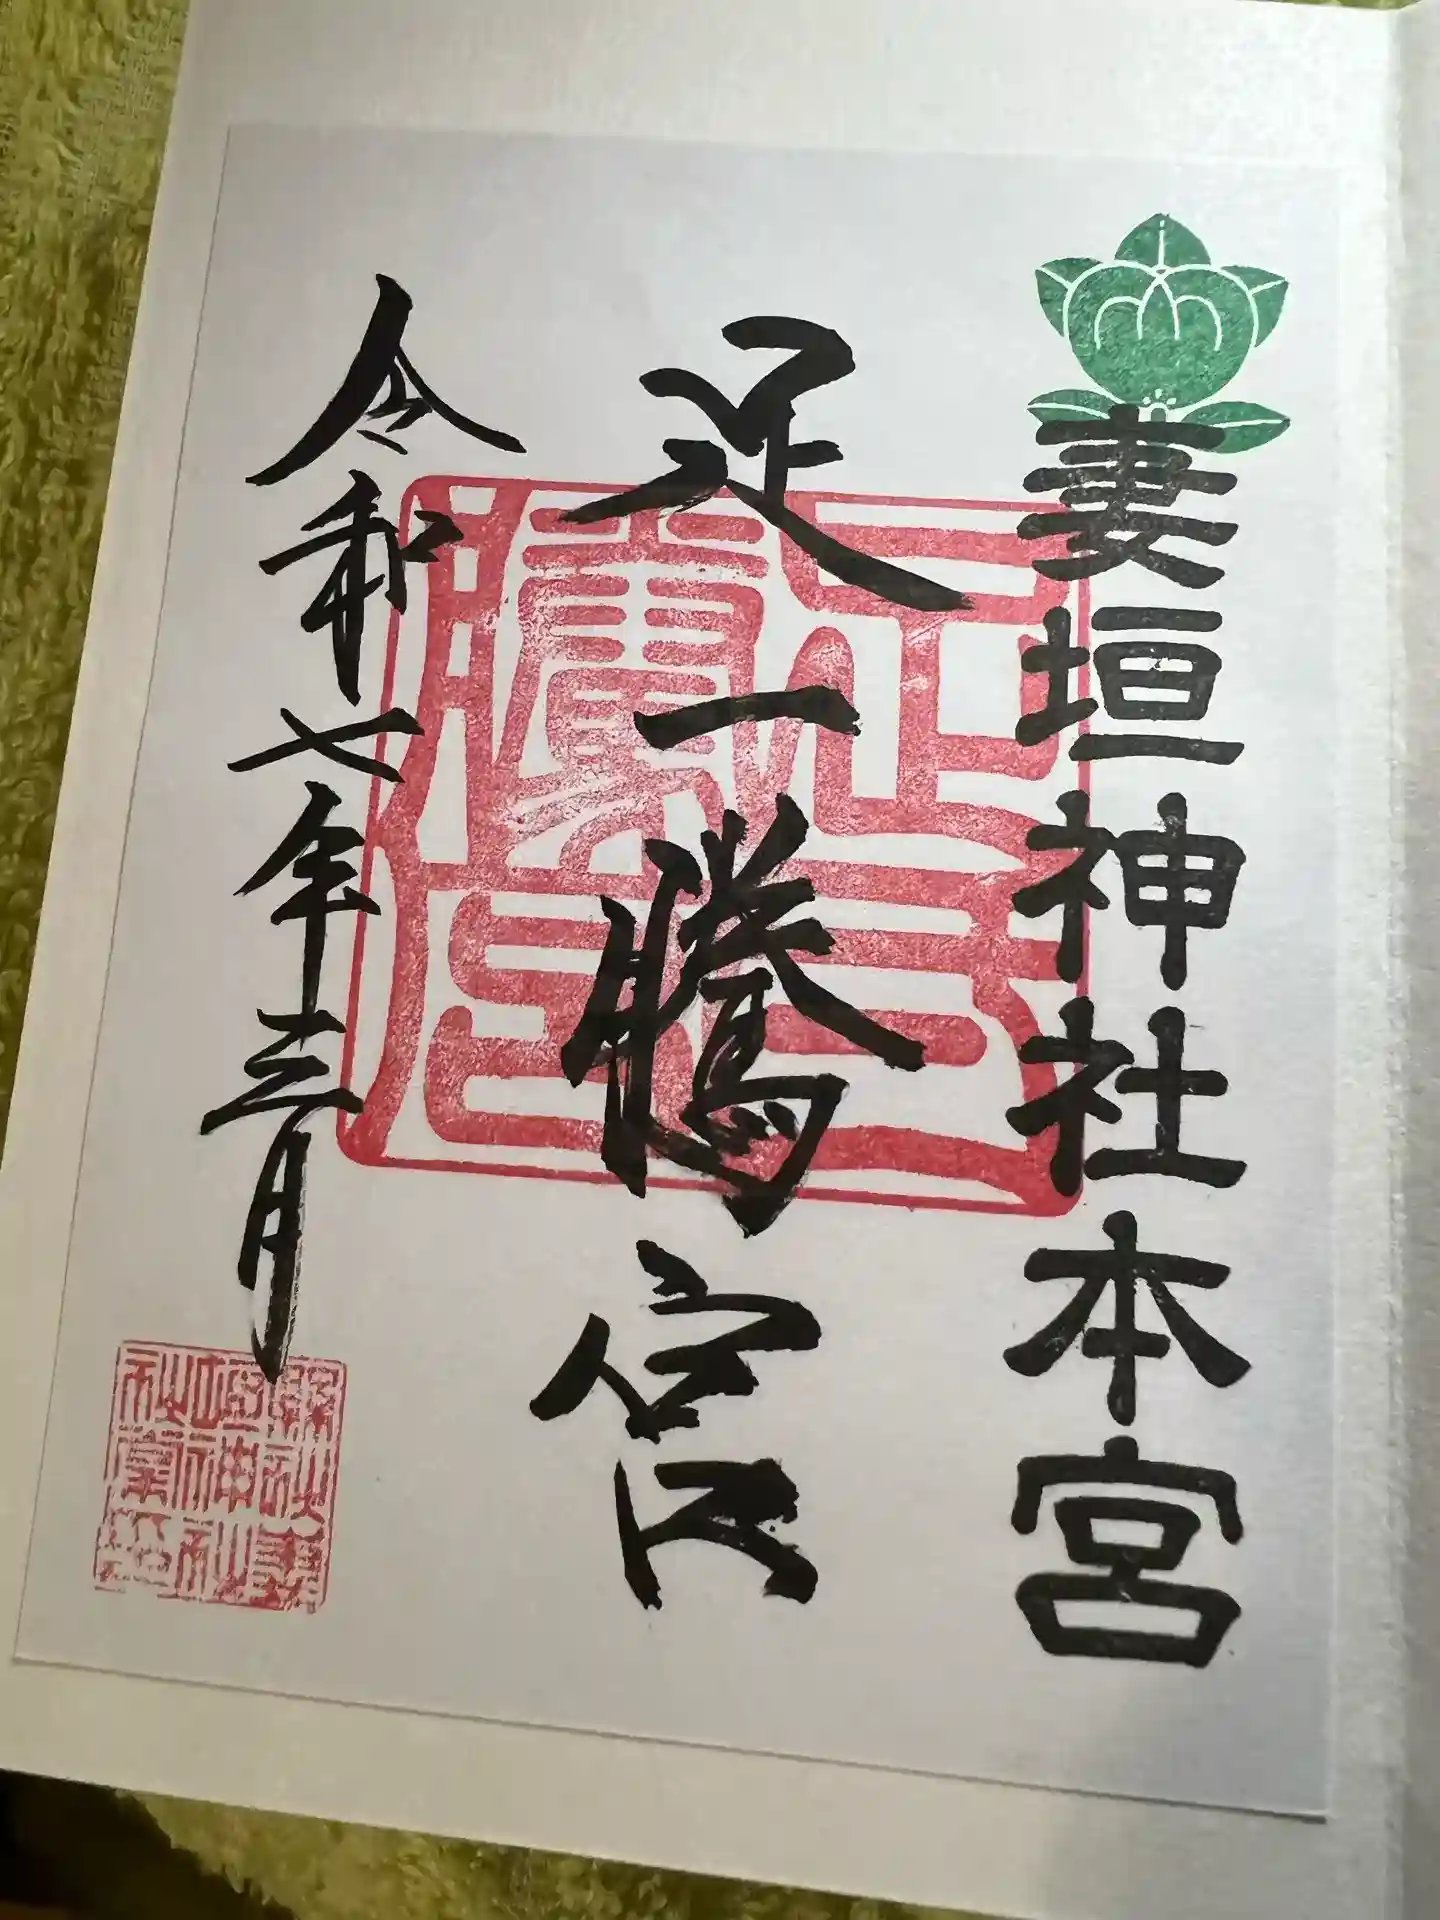 妻垣神社本宮
足一騰宮
令和七年三月